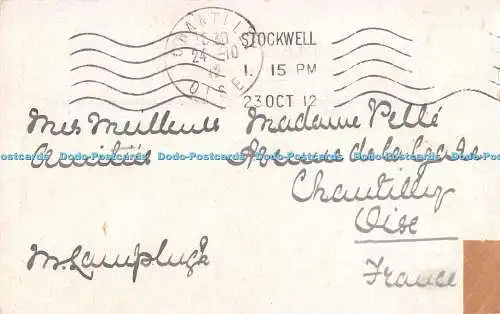 CHANTILLY
15 30
24-10
12
OISE
STOCKWELL
1. 15 PM
23 OCT 12
Mes Meilleures
Amitiés
M. Lamplugh
Madame Pellé
Avenue de la Gare
Chantilly
Oise
France
Dodo-Postcards Dodo-Postcards Dodo-Postcards Dodo-Postcards Dodo-Postcards